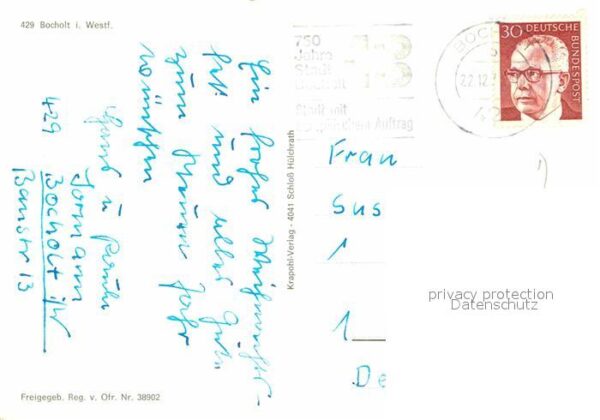 429 Bocholt i. Westf.
Ein frohes Weihnachts-
fest und alles Gute
zum Neuen Jahr
wünschen
Hans u
429 Bocholt i/W
Baustr 13
Freigegeb. Reg. v. Ofr. Nr. 38902
Krapohl-Verlag - 4041 Schloß Hülchrath
750
Jahre
Stadt
Bocholt
Stadt mit
Auftrag
BOCHO
22.12.7
42
30 DEUTSCHE
BUNDESPOST
Frau
Sus
1
1
De
privacy protection
Datenschutz